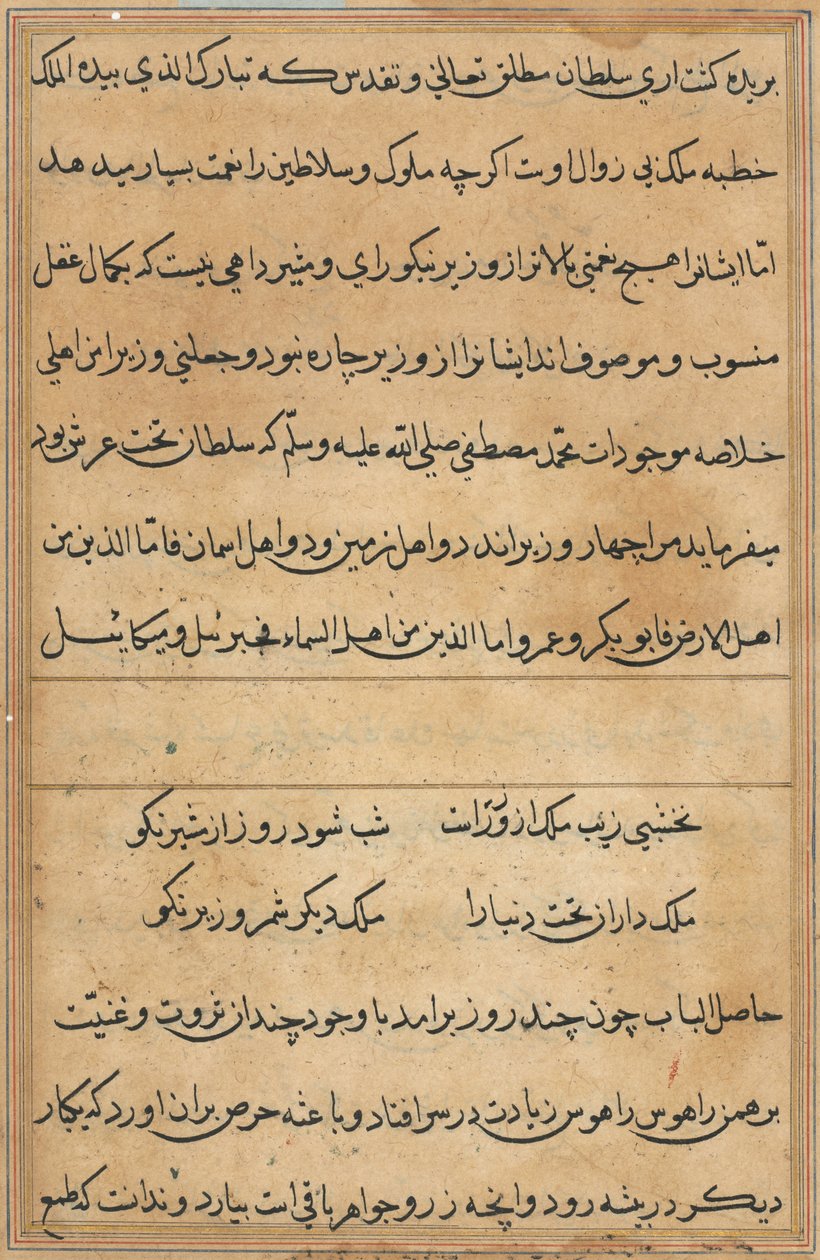 بریده کشت اري سلطان مطلق تعالي و تقدس که تبارک الذي بیده الملک
خطبه ملک بي زوال اوست اکرچه ملوک و سلاطین را نعمت بسیار میدهد
امّا ایشانرا هیچ نعمتي بالاتر از وزیر نیکوراي و مشیر داهي نیست که بکمال عقل
منسوب و موصوف اند ایشانرا از وزیر چاره نبود و جعلني وزیرا من اهلي
خلاصه موجودات محمّد مصطفي صلي الله علیه و سلّم که سلطان تخت عرش بود
میفرماید مرا چهار وزیراند دو اهل زمین و دو اهل اسمان فامّا الذین من
اهل الارض فابو بکر و عمر و اما الذین من اهل السماء فجبرئیل و میکائیل
نخشبي زیب ملک از وزراست شب شود روز از مشیر نکو
ملک داران تخت دنیا را ملک دیکر شمر وزیر نکو
حاصل الباب چون چند روز برامد با وجود چندان ثروت و غنیّت
برهمن را هوس را هوس زیادت در سر افتاد و باعثه حرص بران اورد که یکبار
دیکر در بیشه رود و انچه زر و جواهر باقي است بیارد و ندانست که طمع